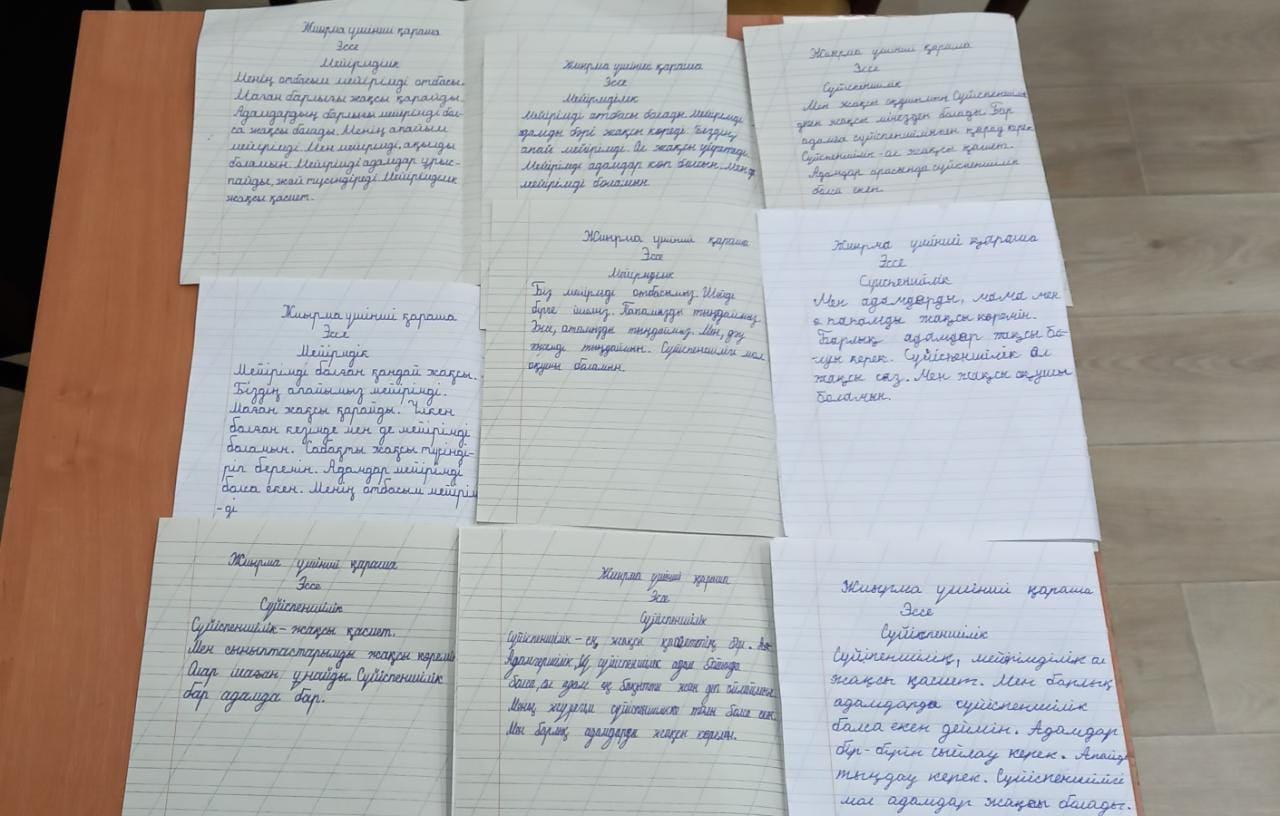 Жиырма үшінші қараша
Эссе
Мейірімділік
Менің отбасым мейірімді отбасы.
Маған барлығы жақсы қарайды.
Адамдардың барлығы мейірімді бол-
са жақсы болады. Менің апайым
мейірімді. Мен мейірімді, ақылды
боламын. Мейірімді адамдар ұрыс-
пайды, жай түсіндіреді. Мейірімділік
жақсы қасиет.
Жиырма үшінші қараша
Эссе
Мейірімділік
Мейірімді отбасы болады. Мейірімді
адамды бәрі жақсы көреді. Біздің
апай мейірімді. Ол жақсы үйретеді.
Мейірімді адамдар көп болсын. Мен де
мейірімді боламын.
Жиырма үшінші қараша
Эссе
Сүйіспеншілік
Мен жақсы оқушымын. Сүйіспеншілік
деген жақсы мінезден болады. Бар
адамға сүйіспеншілікпен қарау керек.
Сүйіспеншілік - ол жақсы қасиет.
Адамдар арасында сүйіспеншілік
болса екен.
Жиырма үшінші қараша
Эссе
Мейірмдік
Мейірімді болған қандай жақсы.
Біздің апайымыз мейірімді.
Маған жақсы қарайды. Үлкен
болған кезімде мен де мейірімді
боламын. Сабақты жақсы түсінді-
ріп беремін. Адамдар мейірімді
болса екен. Менің отбасым мейірім
-ді
Жиырма үшінші қараша
Эссе
Мейірмділік
Біз мейірімді отбасымыз. Шәйді
бірге ішеміз. Папамызды тыңдаймыз.
Әже, атамызды тыңдаймыз. Мен, дәу
әжемді тыңдаймын. Сүйіспеншілігі мол
оқушы боламын.
Жиырма үшінші қараша
Эссе
Сүйіспеншілік
Мен адамдарды, мама мен
папамды жақсы көремін.
Барлық адамдар жақсы бо-
луы керек. Сүйіспеншілік ол
жақсы сөз. Мен жақсы оқушы
боламын.
Жиырма үшінші қараша
Эссе
Сүйіспеншілік
Сүйіспеншілік - жақсы қасиет.
Мен сыныптастарымды жақсы көремін
Олар маған ұнайды. Сүйіспеншілік
бар адамда бар.
Жиырма үшінші қараша
Эссе
Сүйіспеншілік
Сүйіспеншілік - ең жақсы қасиеттің бірі.
Адамгершілік, сүйіспеншілік адам бойында
болса, ол адам ең бақытты жан деп ойлаймын.
Менің жүрегім сүйіспеншілікке толы болса екен.
Мен барлық адамдарды жақсы көремін.
Жиырма үшінші қараша
Эссе
Сүйіспеншілік
Сүйіпеншілік, мейірімділік ол
жақсы қасиет. Мен барлық
адамдарда сүйіспеншілік
болса екен деймін. Адамдар
бір-бірін сыйлау керек. Апайды
тыңдау керек. Сүйіспеншілігі
мол адамдар жақсы болады.